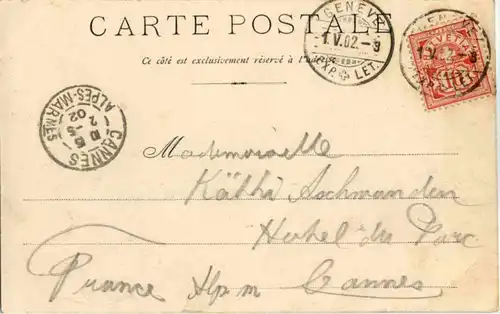 CARTE POSTALE
Ce côté est exclusivement réservé à l'adresse
GENÈVE
1.V.02.-9
EXP. LET.
HELVETIA
10
CANNES
ALPES-MARMES
02
Mademoiselle
Käthi Aschwanden
Hotel du Parc
France Alp. m Cannes